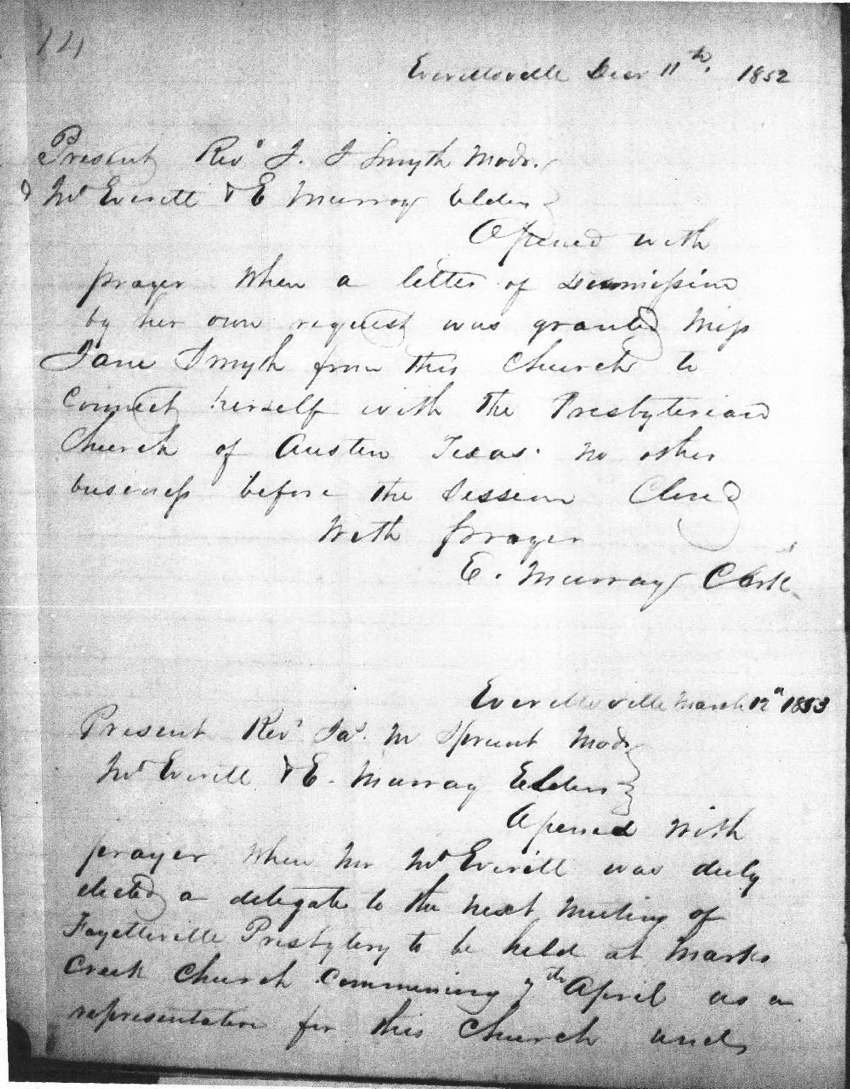 14
Everittsville Decr 11th, 1852
Present Revd J. J Smyth Modr.
& Wm Everitt & E Murray Elders
Opened with
prayer When a letter of Dismission
by her own request was granted Miss
Jane Smyth from this Church to
Connect herself with the Presbyterian
Church of Austen Texas. no other
business before the Session Closed
With prayer
E. Murray Clerk
Everittsville March 12th 1853
Present Revd Jas. M Sprunt Modr
Wm Everitt & E. Murray Elders
Opened With
prayer When Mr Wm Everitt was duly
elected a delegate to the next Meeting of
Fayetteville Presbytery to be held at Marks
Creek Church Commencing 7th April as a
representative for this Church and